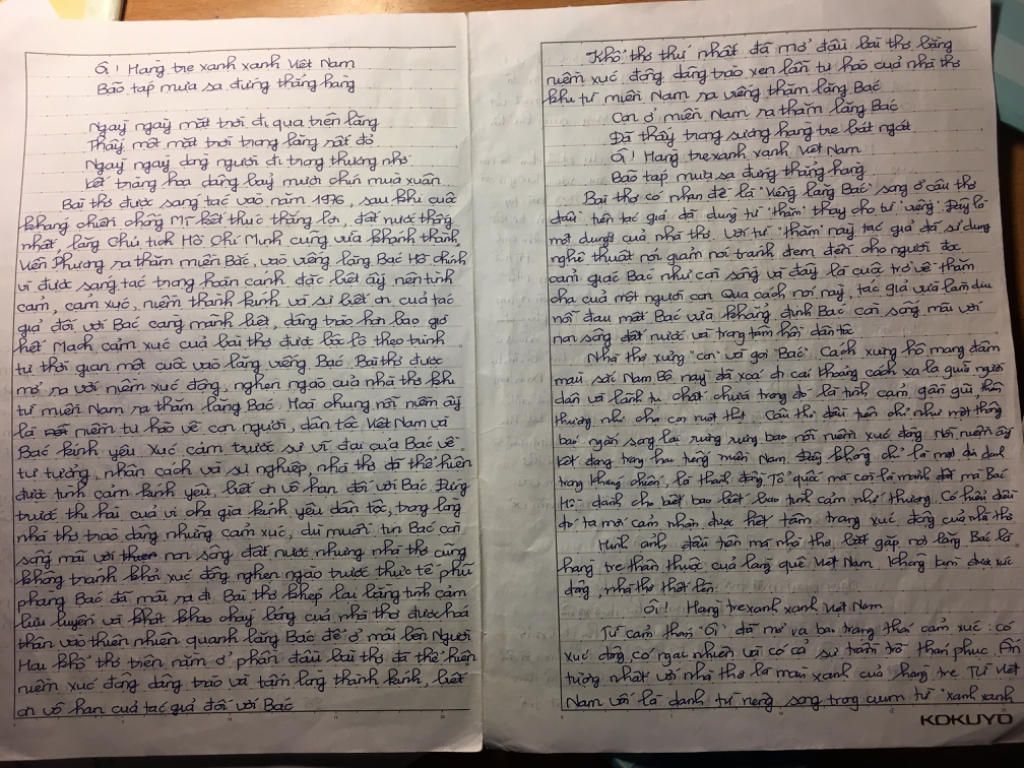 Ôi! Hàng tre xanh xanh Việt Nam
Bão táp mưa sa đứng thẳng hàng
Ngày ngày mặt trời đi qua trên lăng
Thấy một mặt trời trong lăng rất đỏ
Ngày ngày dòng người đi trong thương nhớ
Kết tràng hoa dâng bảy mươi chín mùa xuân
Bài thơ được sáng tác vào năm 1976, sau khi cuộc
kháng chiến chống Mĩ kết thúc thắng lợi, đất nước thống
nhất, lăng Chủ tịch Hồ Chí Minh cũng vừa khánh thành,
Viễn Phương ra thăm miền Bắc, vào viếng lăng Bác Hồ. Chính
vì được sáng tác trong hoàn cảnh đặc biệt ấy nên tình
cảm, cảm xúc, niềm thành kính và sự biết ơn của tác
giả đối với Bác càng mãnh liệt, dâng trào hơn bao giờ
hết. Mạch cảm xúc của bài thơ được bộc lộ theo trình
tự thời gian một cuộc vào lăng viếng Bác. Bài thơ được
mở ra với niềm xúc động, nghẹn ngào của nhà thơ khi
từ miền Nam ra thăm lăng Bác. Hoà chung nỗi niềm ấy
là niềm tự hào về con người, dân tộc Việt Nam và
Bác kính yêu. Xúc cảm trước sự vĩ đại của Bác về
tư tưởng, nhân cách và sự nghiệp, nhà thơ đã thể hiện
được tình cảm kính yêu, biết ơn vô hạn đối với Bác. Đứng
trước thi hài của vị cha già kính yêu dân tộc, trong lòng
nhà thơ trào dâng những cảm xúc, dù muốn tin Bác còn
sống mãi với non sông đất nước nhưng nhà thơ cũng
không tránh khỏi xúc động nghẹn ngào trước thực tế phũ
phàng Bác đã mãi ra đi. Bài thơ khép lại bằng tình cảm
lưu luyến và khát khao cháy bỏng của nhà thơ được hoá
thân vào thiên nhiên quanh lăng Bác để ở mãi bên Người.
Hai khổ thơ trên nằm ở phần đầu bài thơ đã thể hiện
niềm xúc động dâng trào và tấm lòng thành kính, biết
ơn vô hạn của tác giả đối với Bác
Khổ thơ thứ nhất đã mở đầu bài thơ bằng
niềm xúc động dâng trào xen lẫn tự hào của nhà thơ
khi từ miền Nam ra viếng thăm lăng Bác
Con ở miền Nam ra thăm lăng Bác
Đã thấy trong sương hàng tre bát ngát
Ôi! Hàng tre xanh xanh Việt Nam
Bão táp mưa sa đứng thẳng hàng
Bài thơ có nhan đề là "Viếng lăng Bác" song ở câu thơ
đầu tiên tác giả đã dùng từ "thăm" thay cho từ "viếng". Đây là
một dụng ý của nhà thơ. Với từ "thăm" này tác giả đã sử dụng
nghệ thuật nói giảm nói tránh đem đến cho người đọc
cảm giác Bác như còn sống và đây là cuộc trở về thăm
cha của một người con. Qua cách nói này, tác giả vừa làm dịu
nỗi đau mất Bác vừa khẳng định Bác còn sống mãi với
non sông đất nước và trong tâm hồn dân tộc
Nhà thơ xưng "con" và gọi "Bác". Cách xưng hô mang đậm
màu sắc Nam Bộ này đã xoá đi cái khoảng cách xa lạ giữa người
dân và lãnh tụ chất chứa trong đó là tình cảm gần gũi, thân
thương như cha con ruột thịt. Câu thơ đầu tiên chỉ như một thông
báo ngắn song lại rưng rưng bao nỗi niềm xúc động. Nỗi niềm ấy
kết đọng trong hai tiếng miền Nam. Đây không chỉ là mọi địa danh
trong kháng chiến, là thành đồng Tổ quốc mà còn là mảnh đất mà Bác
Hồ dành cho biết bao tình cảm nhớ thương. Có hiểu điều
đó ta mới cảm nhận được hết tâm trạng xúc động của nhà thơ
Hình ảnh đầu tiên mà nhà thơ bắt gặp nơi lăng Bác là
hàng tre thân thuộc của làng quê Việt Nam. Không kìm được xúc
động, nhà thơ thốt lên
Ôi! Hàng tre xanh xanh Việt Nam
Từ cảm thán "Ôi" đã mở ra bao trạng thái cảm xúc: có
xúc động, có ngạc nhiên và có cả sự trầm trồ thán phục. Ấn
tượng nhất với nhà thơ là màu xanh của hàng tre. Từ Việt
Nam vốn là danh từ riêng song trong cụm từ "xanh xanh
KOKUYO